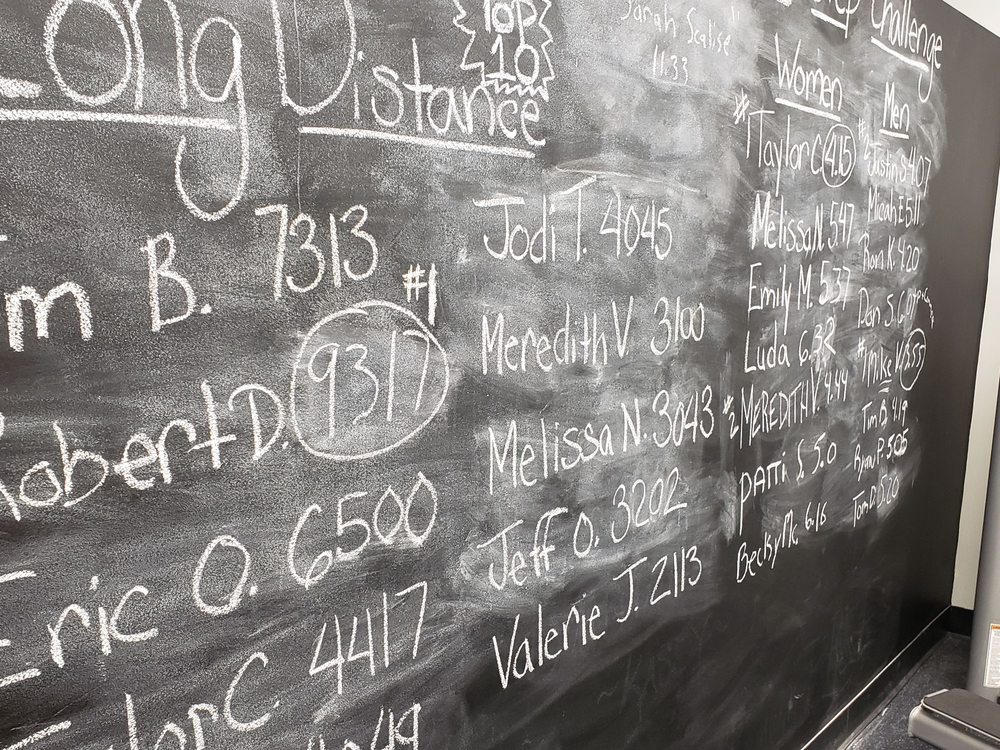 Long Distance
TOP
10
m B. 7313
#1
Robert D. 9317
Eric O. 6500
C. 4417
Jodi T. 4045
Meredith V 3100
Melissa N. 3043
Jeff O. 3202
Valerie J. 2113
Sarah Scalise
11:33
Challenge
Women
#1 Taylor C 4.15
Melissa N 5.47
Emily M. 5.37
Luda 6.32
#2 MEREDITH V. 4.44
PATTI S 5.0
Becky Mc. 6.16
Men
Justin S 4.07
Micah E 5.11
Ron K. 4.20
Dan S.
#1 Mike V 3.55
Tim B. 4.19
Ryan P. 5.05
Tom D. 5.20